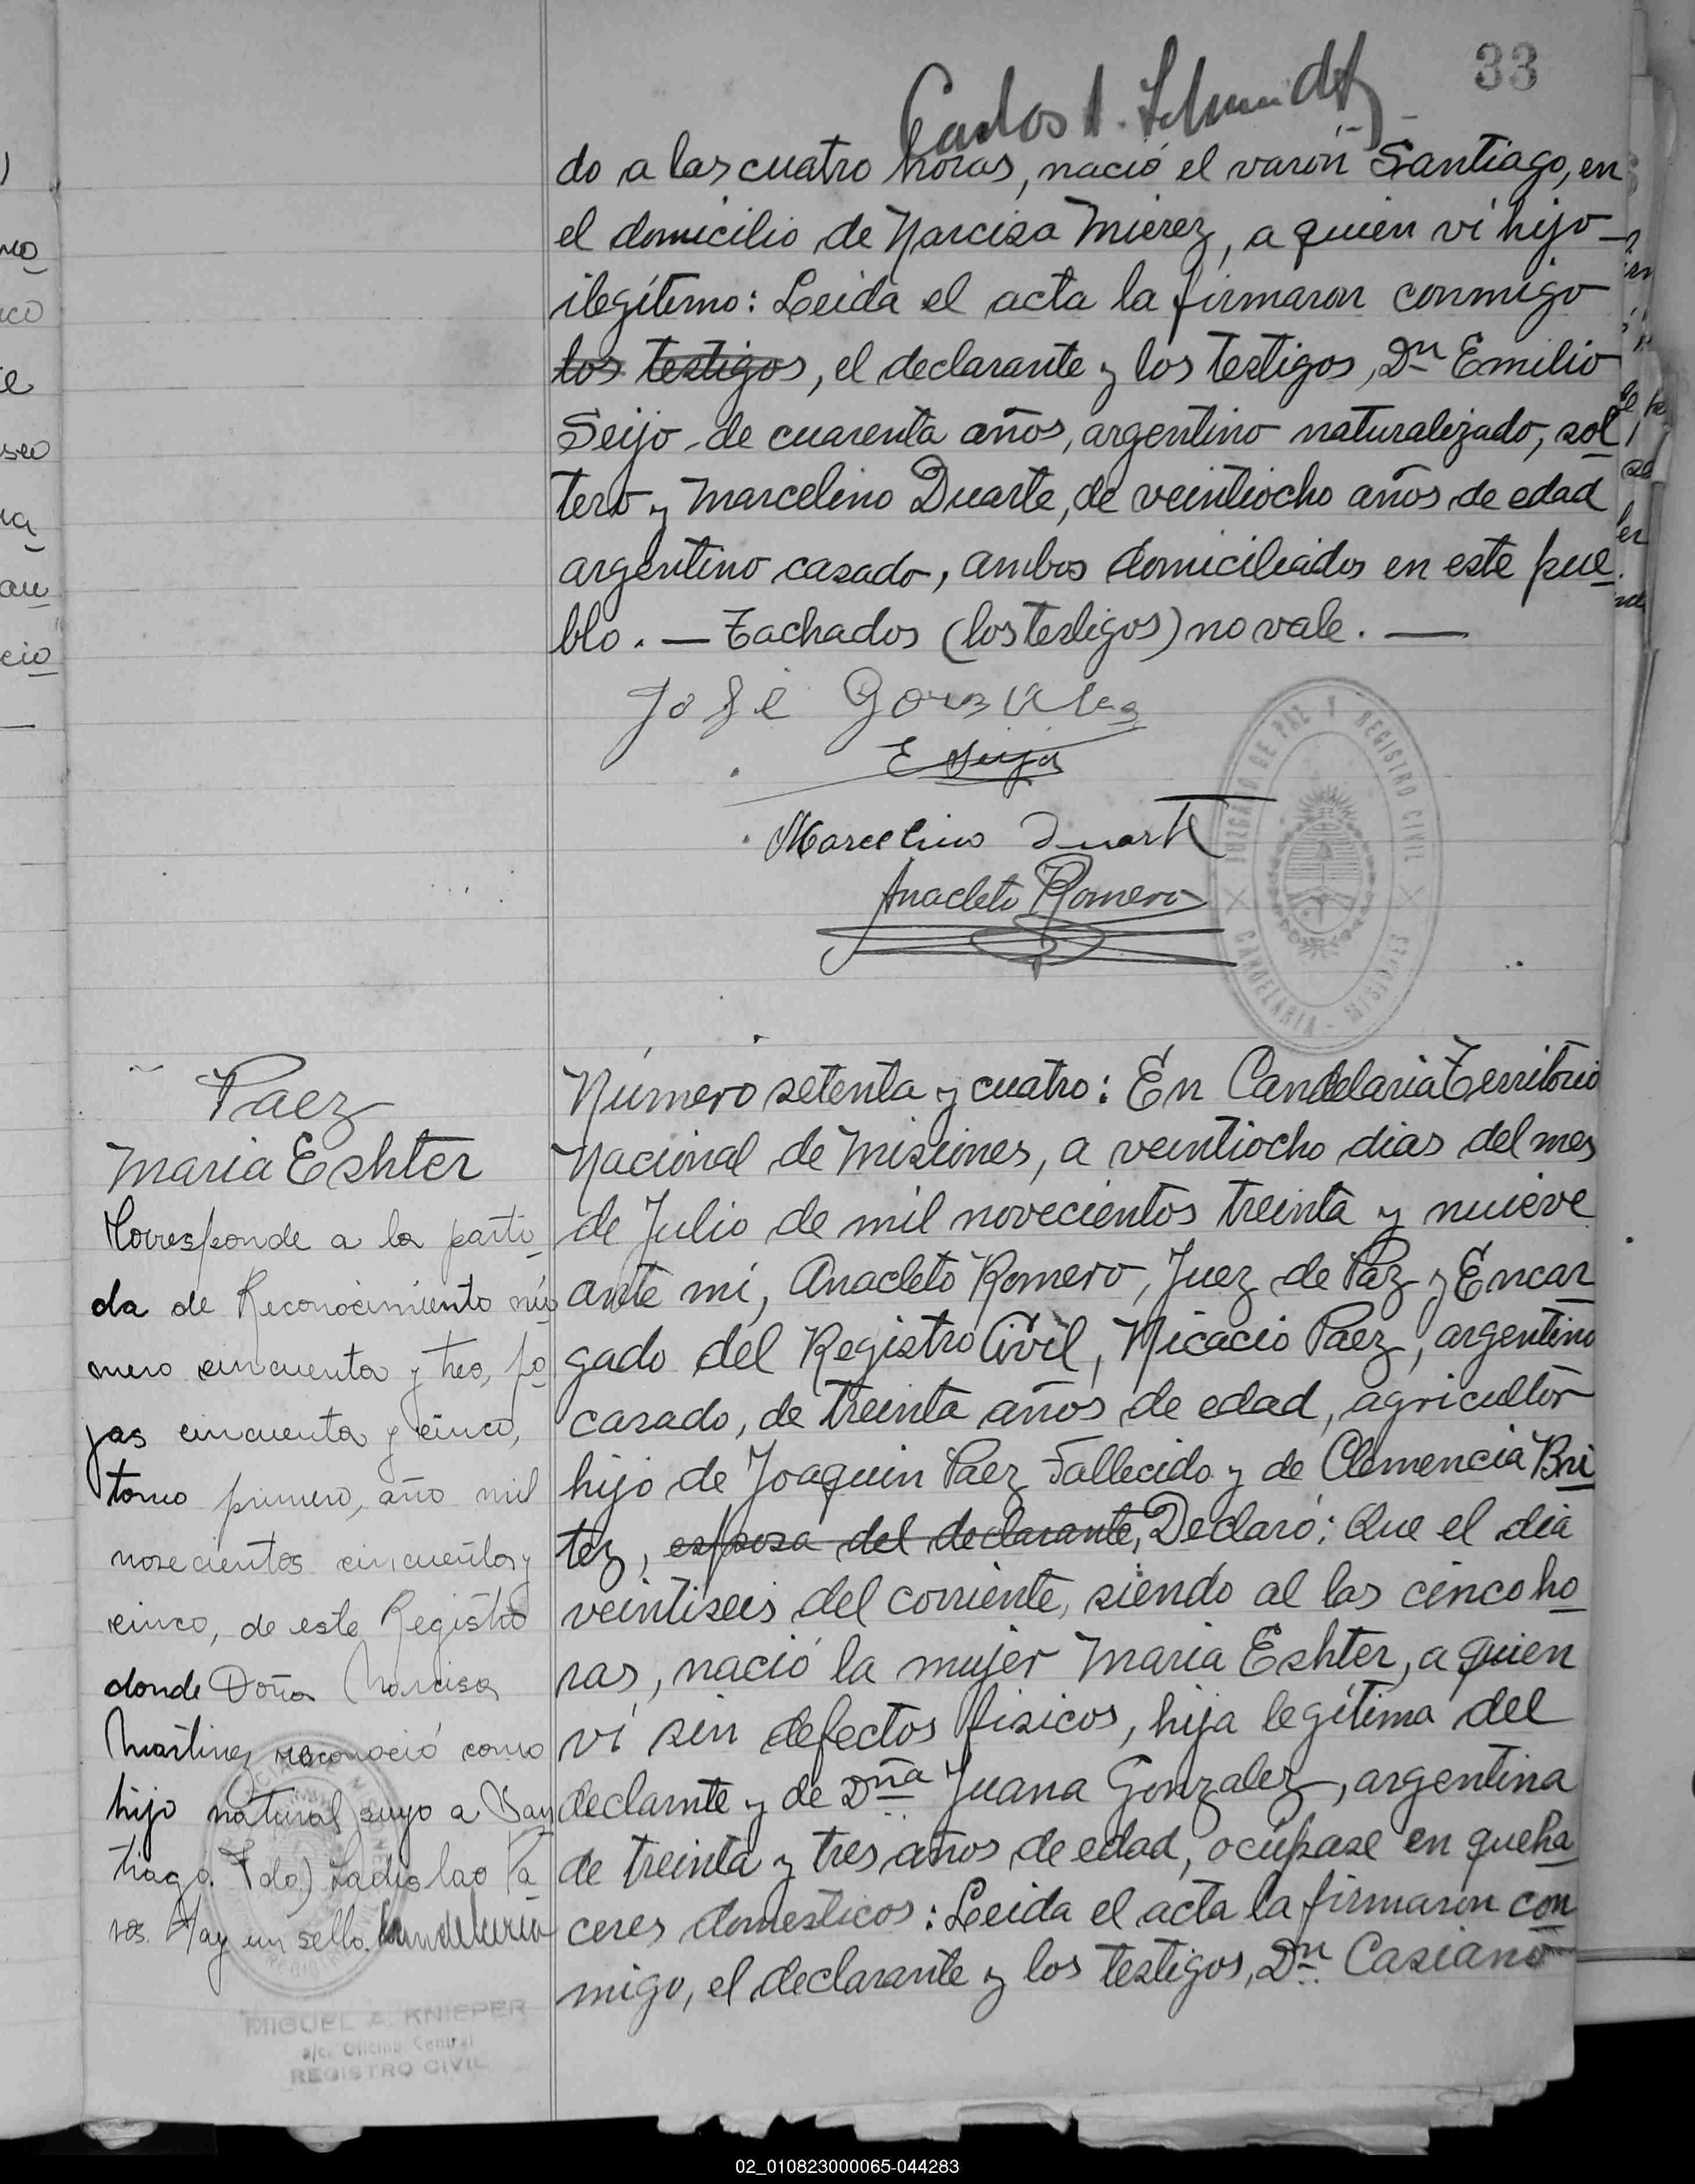 33
Carlos A. Schmidt
do a las cuatro horas, nació el varón Santiago, en
el domicilio de Narcisa Mierez, a quien ví hijo
ilegítimo: Leida el acta la firmaron conmigo
los testigos, el declarante y los testigos, Dn Emilio
Seijo de cuarenta años, argentino naturalizado, sol
tero y Marcelino Duarte, de veintiocho años de edad
argentino casado, ambos domiciliados en este pue
blo. — Tachados (los testigos) no vale. —
José Gonzalez
E Seijo
Marcelino Duarte
Anacleto Romero
JUZGADO DE PAZ Y REGISTRO CIVIL
CANDELARIA - MISIONES
Paez
Maria Eshter
Corresponde a la parti
da de Reconocimiento nú
mero cincuenta y tres, fo
jas cincuenta y cinco,
tomo primero, año mil
novecientos cincuenta y
cinco, de este Registro
donde Doña Narcisa
Martinez reconoció como
hijo natural suyo a San
tiago. Fdo) Ladislao Pa
Hay un sello. Candelaria
MIGUEL A. KNIEPER
a/c. Oficina Central
REGISTRO CIVIL
Número setenta y cuatro: En Candelaria Territorio
Nacional de Misiones, a veintiocho dias del mes
de Julio de mil novecientos treinta y nuieve
ante mí, Anacleto Romero, Juez de Paz y Encar
gado del Registro Civil, Nicacio Paez, argentino
casado, de treinta años de edad, agricultor
hijo de Joaquin Paez Fallecido y de Clemencia Bri
tez, esposa del declarante, Declaró: Que el dia
veintiseis del corriente, siendo al las cinco ho
ras, nació la mujer Maria Eshter, a quien
ví sin defectos fisicos, hija legítima del
declarnte y de Dña Juana Gonzalez, argentina
de treinta y tres años de edad, ocúpase en queha
ceres domesticos: Leida el acta la firmaron con
migo, el declarante y los testigos, Dn Casiano
02_010823000065-044283